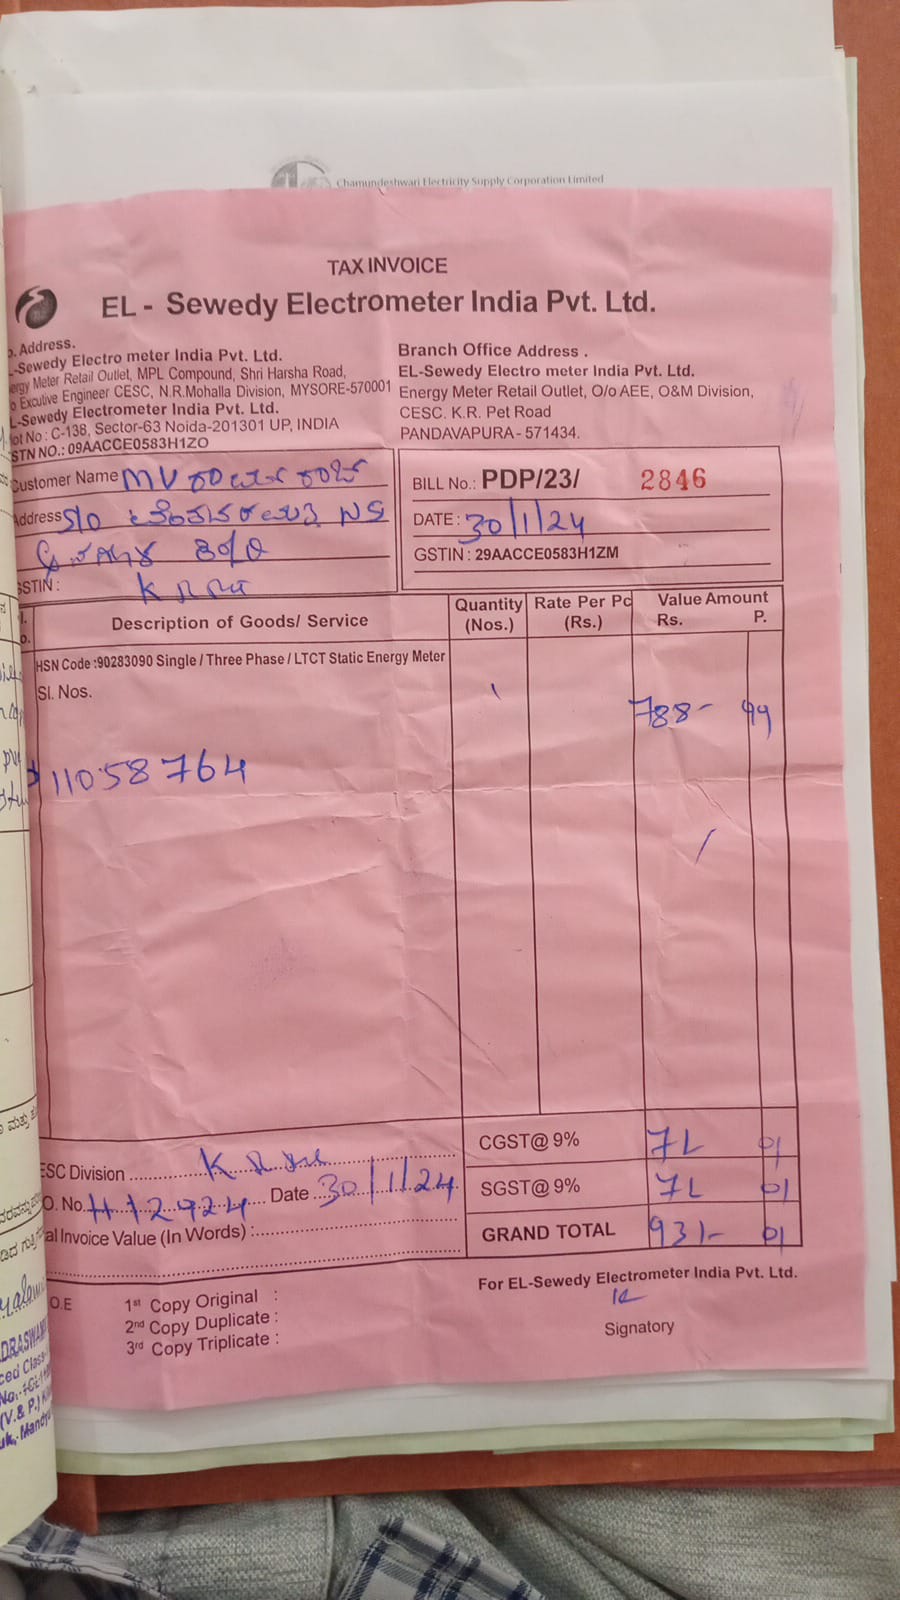 Chamundeshwari Electricity Supply Corporation Limited
TAX INVOICE
EL - Sewedy Electrometer India Pvt. Ltd.
Address.
-Sewedy Electro meter India Pvt. Ltd.
ergy Meter Retail Outlet, MPL Compound, Shri Harsha Road,
o Excutive Engineer CESC, N.R.Mohalla Division, MYSORE-570001
L-Sewedy Electrometer India Pvt. Ltd.
ot No : C-138, Sector-63 Noida-201301 UP, INDIA
STN NO.: 09AACCE0583H1ZO
Branch Office Address .
EL-Sewedy Electro meter India Pvt. Ltd.
Energy Meter Retail Outlet, O/o AEE, O&M Division,
CESC. K.R. Pet Road
PANDAVAPURA - 571434.
Customer Name MV
Address S/O
GSTIN :
BILL No.: PDP/23/ 2846
DATE : 30/1/24
GSTIN : 29AACCE0583H1ZM
Description of Goods/ Service
Quantity (Nos.)
Rate Per Pc (Rs.)
Value Amount
Rs. P.
HSN Code :90283090 Single / Three Phase / LTCT Static Energy Meter
Sl. Nos.
1
788- 99
11058764
CGST@ 9% 71 01
SGST@ 9% 71 01
GRAND TOTAL 931- 01
ESC Division
O. No. H12924 Date 30/1/24
al Invoice Value (In Words) :
For EL-Sewedy Electrometer India Pvt. Ltd.
Signatory
O.E
1st Copy Original :
2nd Copy Duplicate :
3rd Copy Triplicate :